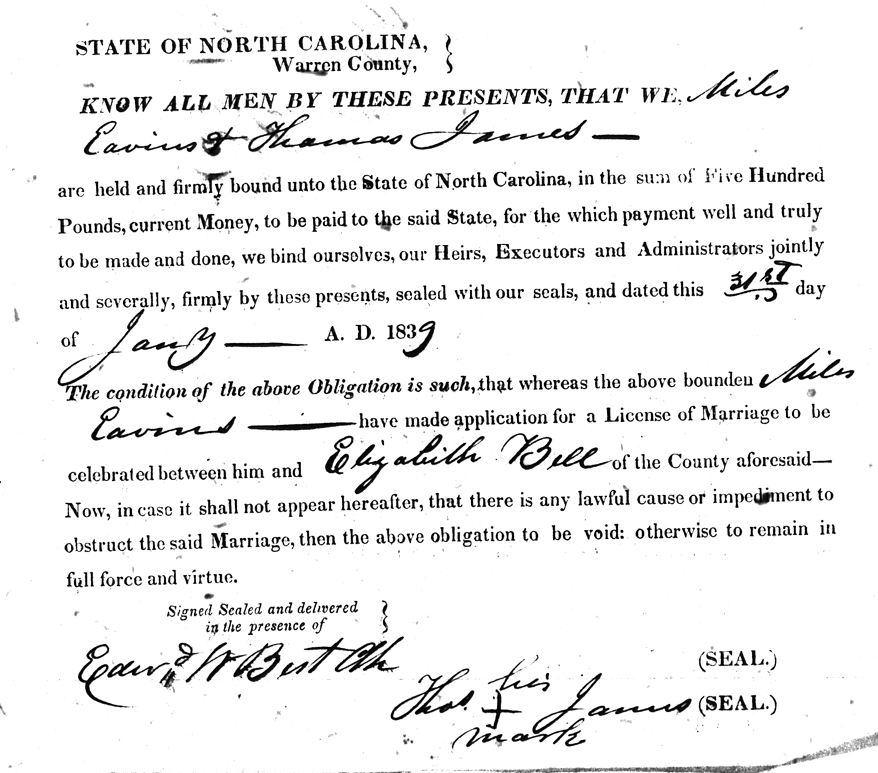 STATE OF NORTH CAROLINA,
Warren County,
KNOW ALL MEN BY THESE PRESENTS, THAT WE, Miles
Eavins & Thomas James —
are held and firmly bound unto the State of North Carolina, in the sum of Five Hundred
Pounds, current Money, to be paid to the said State, for the which payment well and truly
to be made and done, we bind ourselves, our Heirs, Executors and Administrators jointly
and severally, firmly by these presents, sealed with our seals, and dated this 31st day
of Jany — A. D. 1839
The condition of the above Obligation is such, that whereas the above bounden Miles
Eavins — have made application for a License of Marriage to be
celebrated between him and Elizabith Bell of the County aforesaid—
Now, in case it shall not appear hereafter, that there is any lawful cause or impediment to
obstruct the said Marriage, then the above obligation to be void: otherwise to remain in
full force and virtue.
Signed Sealed and delivered
in the presence of
Edwd W Best Clk
(SEAL.)
his
Thos. + James (SEAL.)
mark